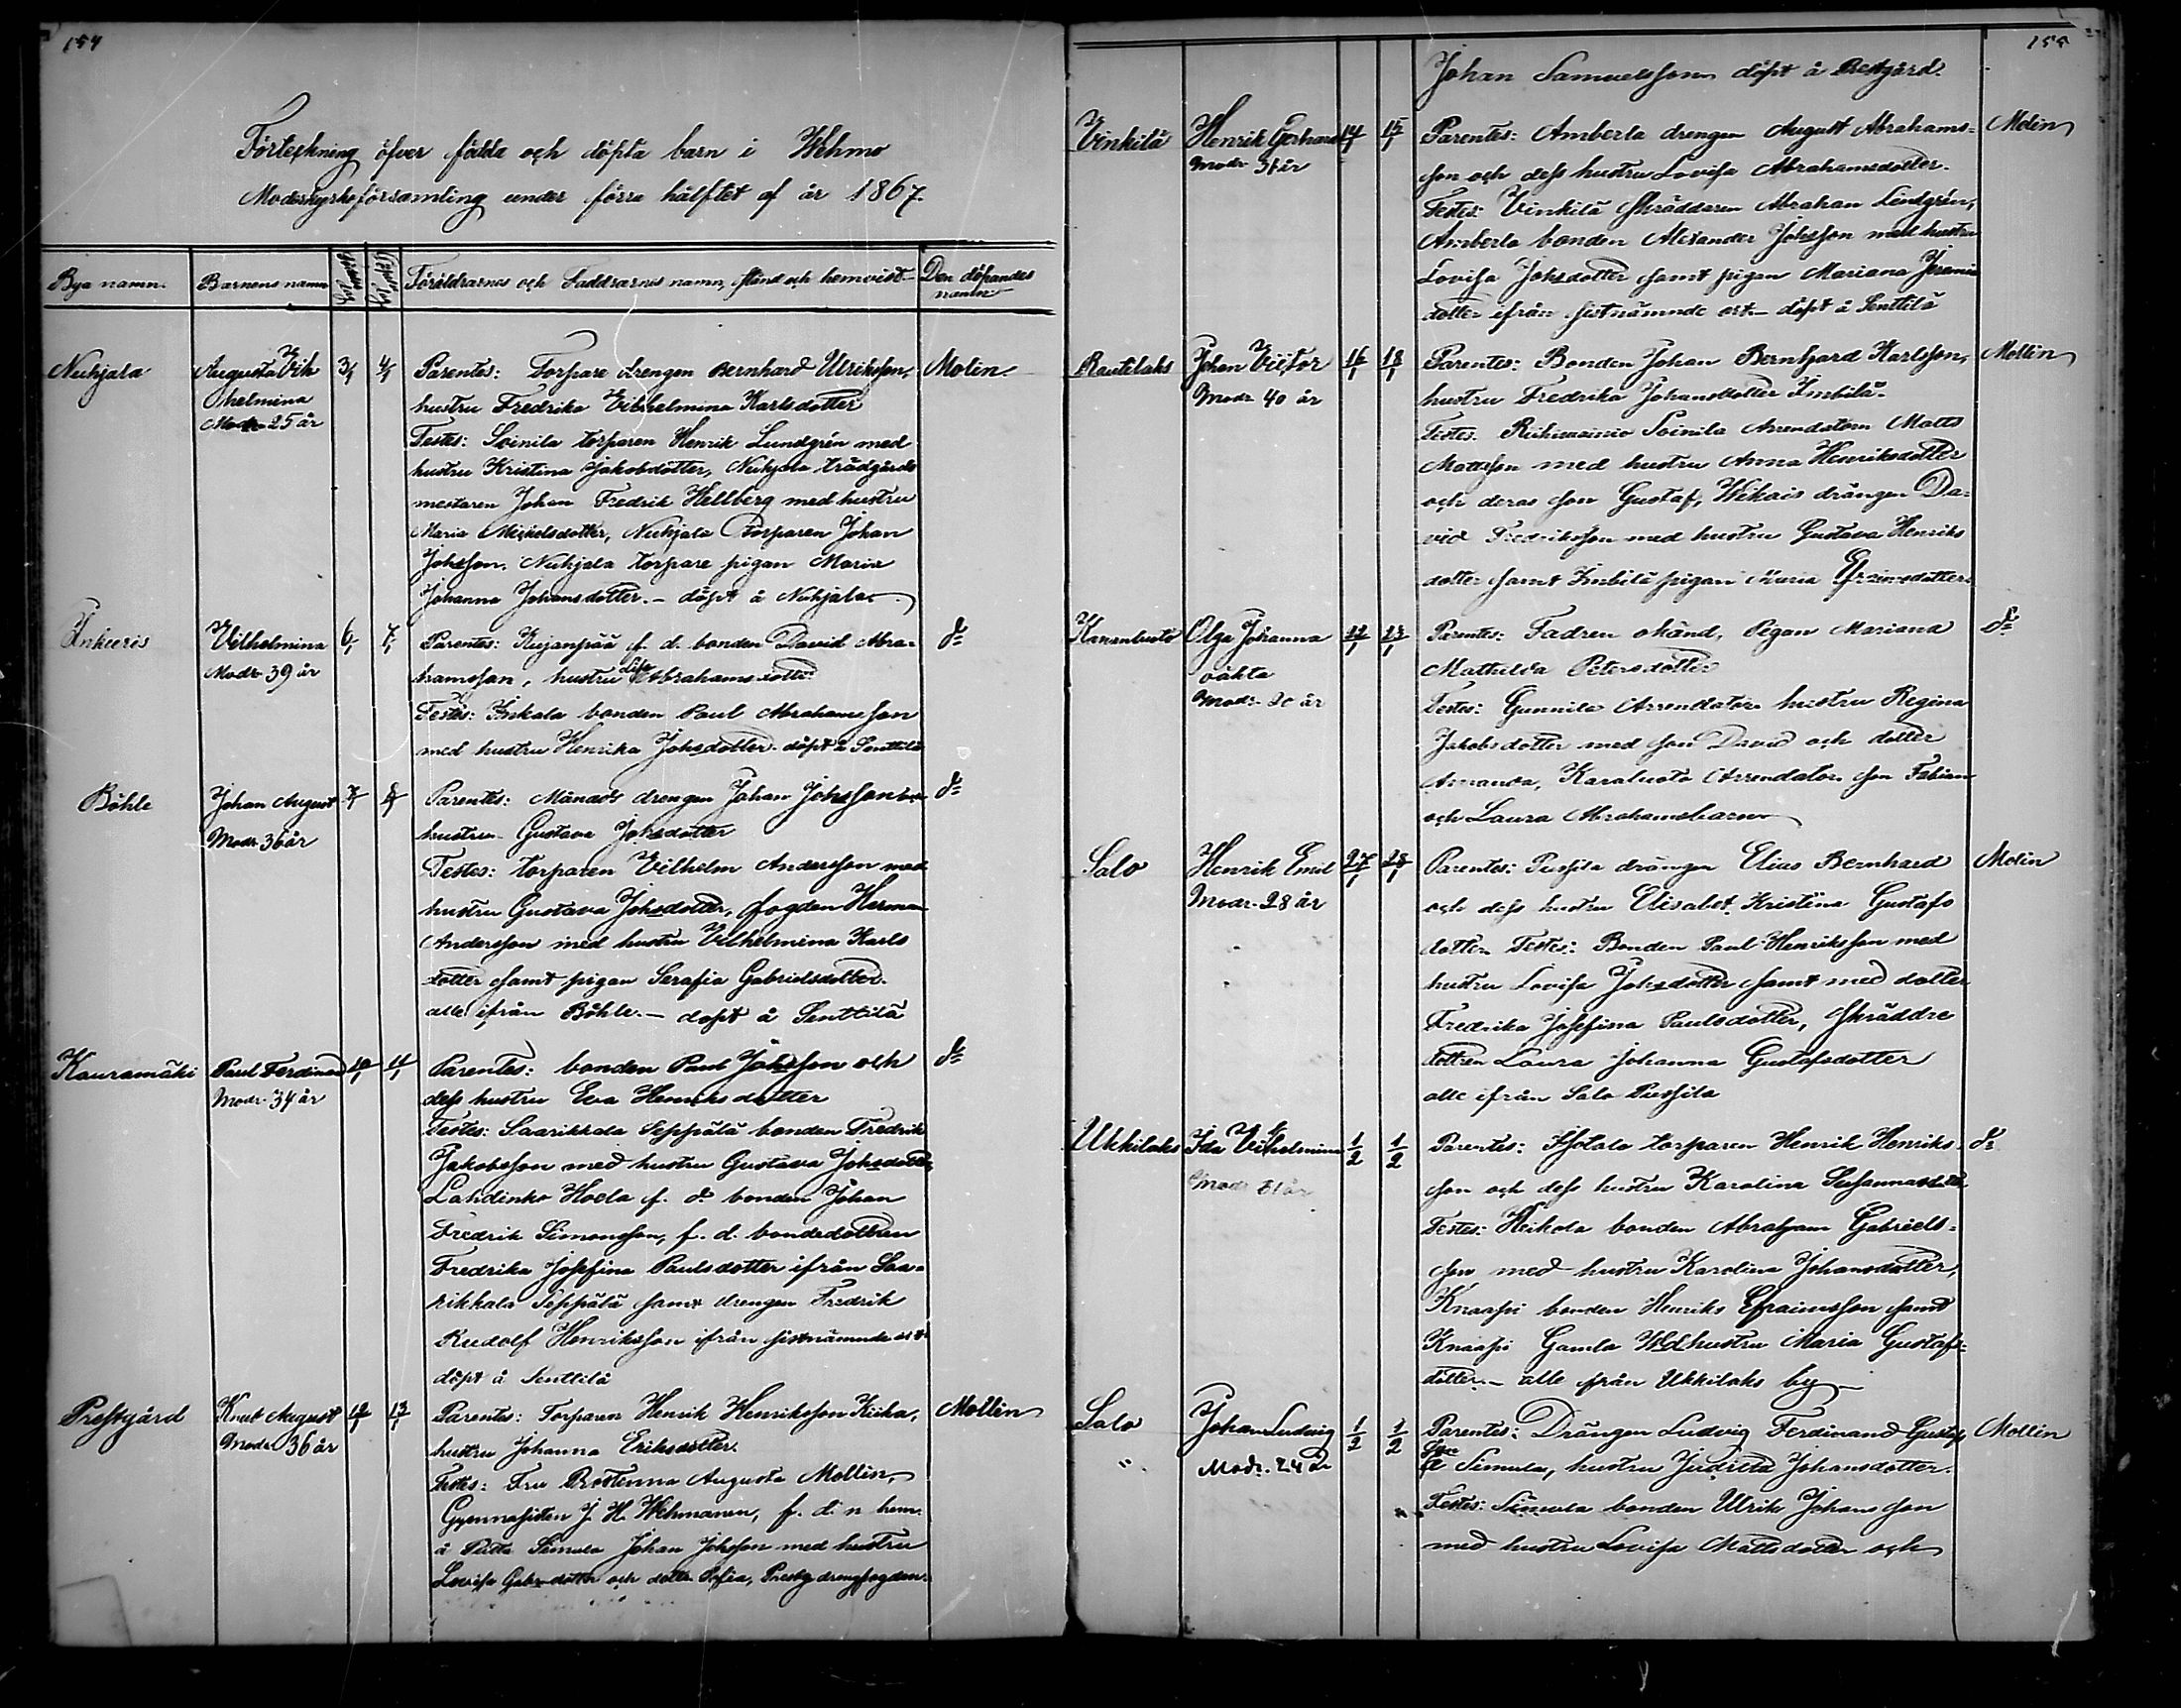 154
Förteckning öfver födda och döpta barn i Wehmo
Moderkyrkoförsamling under förra hälftet af år 1867.
Bya namn. Barnens namn Föräldrarnes och Faddrarnes namn, stånd och hemvist. Den döpandes
namn
Nuhjala Augusta Vil 3/1 4/1 Parentes: Torpare drengen Bernhard Ulriksson, Molin
helmina hustru Fredrika Vilhelmina Karlsdotter
Modr 25 år
Testes: Soinila torparen Henrik Lundgrén med
hustru Kristina Jakobdotter, Nuhjala trädgårds
mestaren Johan Fredrik Hellberg med hustru
Maria Michelsdotter, Nuhjala Torparen Johan
Johsson, Nuhjala torpare pigan Maria
Johanna Johansdotter. – döpt å Nuhjala
Inkuris Vilhelmina 6/1 7/1 Parentes: Kujanpää f. d. bonden David Abra- do
Modr 39 år hamsson, hustru Lisa Abrahamsdotter
Testes: Inkala bonden Paul Abrahamsson
med hustru Henrika Johsdotter döpt å Senttilä
Böhle Johan August 7/1 8/1 Parentes: Månads drengen Johan Johsson do
Modr 36 år hustru Gustava Johsdotter
Testes: torparen Vilhelm Andersson med
hustru Gustava Johsdotter, fogden Herman
Andersson med hustru Vilhelmina Karls
dotter samt pigan Serafia Gabrielsdotter
alle ifrån Böhle. – döpt å Senttilä
Kauramäki Paul Ferdinand 10/1 11/1 Parentes: bonden Paul Johsson och do
Modr 34 år dess hustru Eva Henriksdotter
Testes: Saarikkala Seppälä bonden Fredrik
Jakobsson med hustru Gustava Johsdotter,
Lahdinko Hoela f. d. bonden Johan
Fredrik Simonsson, f. d. bondedottren
Fredrika Josefina Paulsdotter ifrån Saa-
rikkala Seppälä samt drengen Fredrik
Rudolf Henriksson ifrån sistnämnde ort
döpt å Senttilä
Prestgård Knut August 12/1 13/1 Parentes: Torparen Henrik Henriksson Kiika, Mollin
Modr 36 år hustru Johanna Eriksdotter.
Testes: Fru Prostinna Augusta Mollin,
Gymnasisten J. H. Wehmanen, f. d. n hem.
å Putta Simula Johan Johsson med hustru
Lovisa Gabrsdotter och dotter Sofia, Prestg drengfogden
155
Johan Samuelsson döpt å Prestgård.
Vinkilä Henrik Gerhard 14/1 15/1 Parentes: Amberla drengen August Abrahams- Molin
Modr 36 år son och dess hustru Lovisa Abrahamsdotter.
Testes: Vinkilä Skräddaren Abraham Lindgrén,
Amberla bonden Alexander Johsson med hustru
Lovisa Johsdotter samt pigan Mariana Jeremia
dotter ifrån sistnämnde ort – döpt å Senttilä
Rautilaks Johan Victor 16/1 18/1 Parentes: Bonden Johan Bernhard Karlsson, Mollin
Modr 40 år hustru Fredrika Johansdotter Imbilä.
Testes: Soinila Arrendatorn Matts
Mattsson med hustru Anna Henriksdotter
och deras son Gustaf, Wikais drängen Da-
vid Fredriksson med hustru Gustava Henriks
dotter samt Imbilä pigan Maria Efraimsdotter.
Olga Johanna Parentes: Fadren okänd, Pigan Mariana do
oäkta Mathilda Petersdotter
Modr 20 år
Testes: Gunnila Arrendators hustru Regina
Jakobsdotter med son David och dotter
Amanda, Karaluoto Arrendators son Fabian
och Laura Abrahamsbarn
Salo Henrik Emil 27/1 28/1 Parentes: Pussila drängen Elias Bernhard Molin
Modr 28 år och dess hustru Elisabet Kristina Gustafs
dotter Testes: Bonden Paul Henriksson med
hustru Lovisa Johsdotter samt med dotter
Fredrika Josefina Paulsdotter, Skräddre
dottren Laura Johanna Gustafsdotter
alle ifrån Salo Pussila
Ukkilaks Ida Vilhelmina 1/2 1/2 Parentes: torparen Henrik Henriks- do
Modr 31 år son och dess hustru Karolina Susannasdotter,
Testes: Heikola bonden Abraham Gabriels-
son med hustru Karolina Johansdotter,
Knaapi bonden Henriks Efraimsson samt
Knaapi Gamla Wdhustru Maria Gustafs-
dotter – alle från Ukkilaks by
Salo Johan Ludvig 1/2 1/2 Parentes: Drängen Ludvig Ferdinand Gustaf Mollin
son
" Modr. 24 år å Simula, hustru Judrita Johansdotter.
Testes: Simula bonden Ulrik Johansson
med hustru Lovisa Mattsdotter och